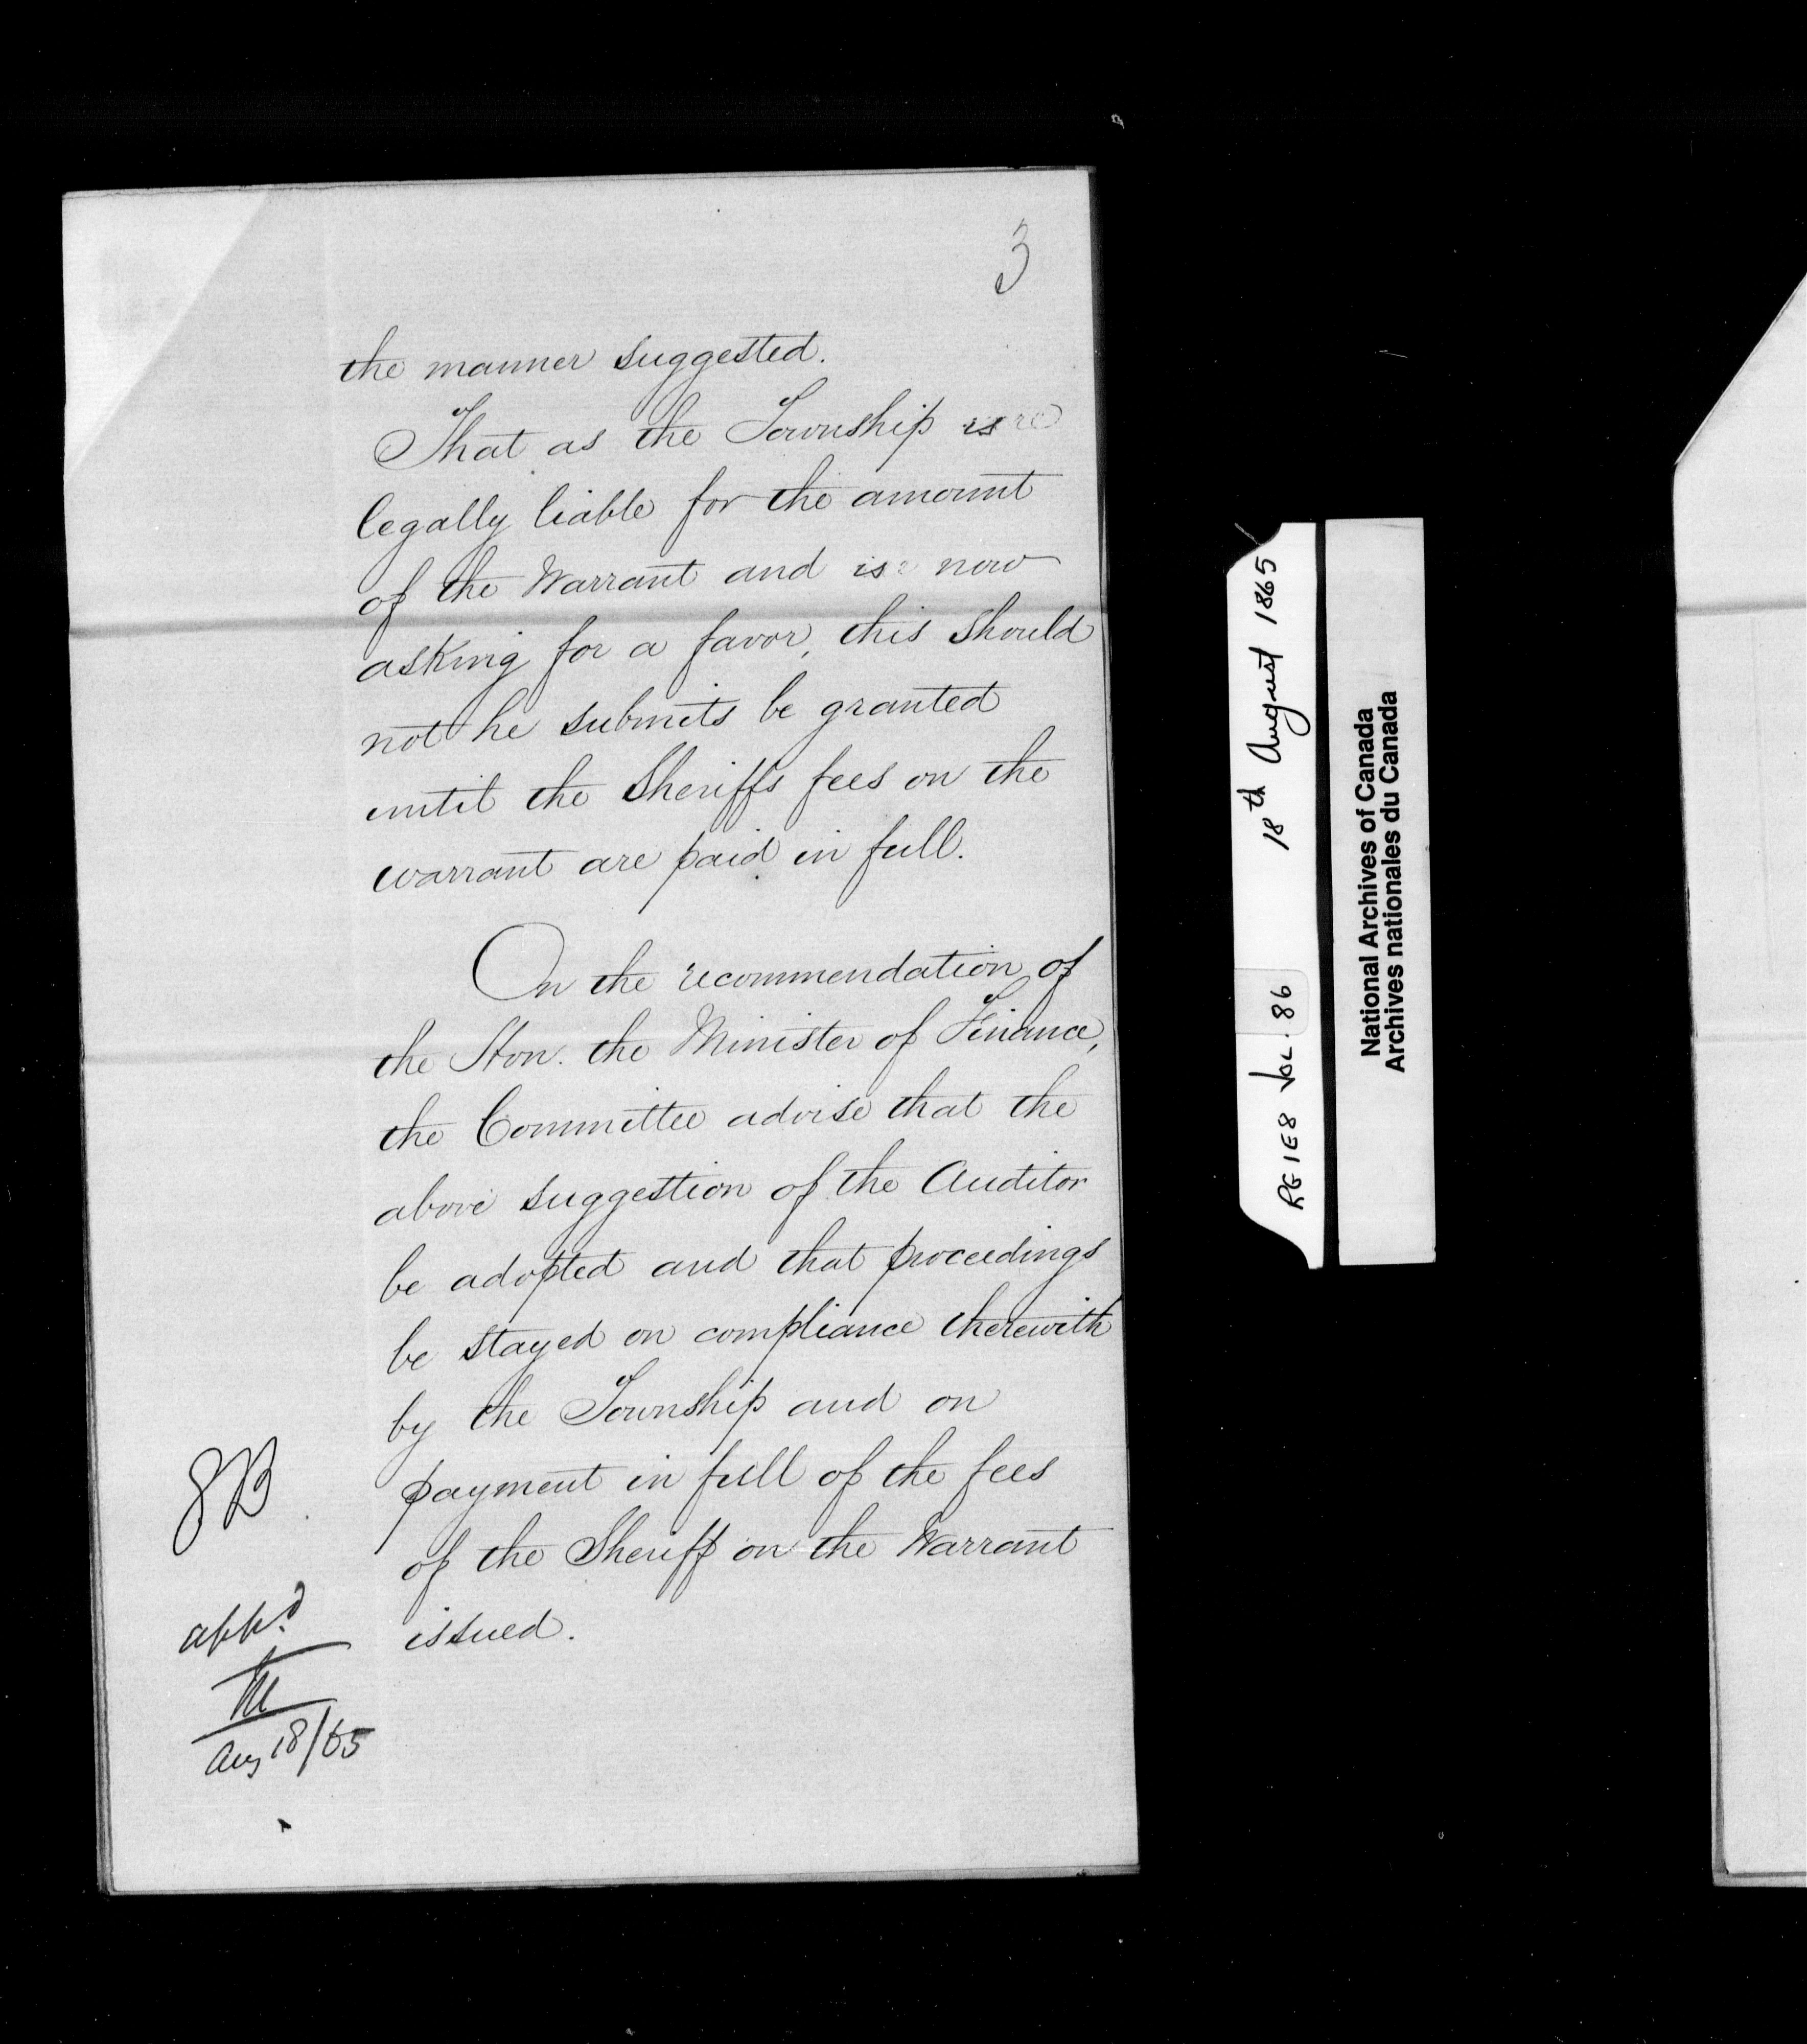 3
the manner suggested.
That as the Township is
legally liable for the amount
of the Warrant and is now
asking for a favor, this should
not he submits be granted
until the Sheriffs fees on the
warrant are paid in full.
On the recommendation of
the Hon. the Minister of Finance,
the Committee advise that the
above suggestion of the Auditor
be adopted and that proceedings
be stayed on compliance therewith
by the Township and on
payment in full of the fees
of the Sheriff on the Warrant
issued.
appd
Aug 18/65
RG 1 E8 VOL. 86 18th August 1865
National Archives of Canada
Archives nationales du Canada